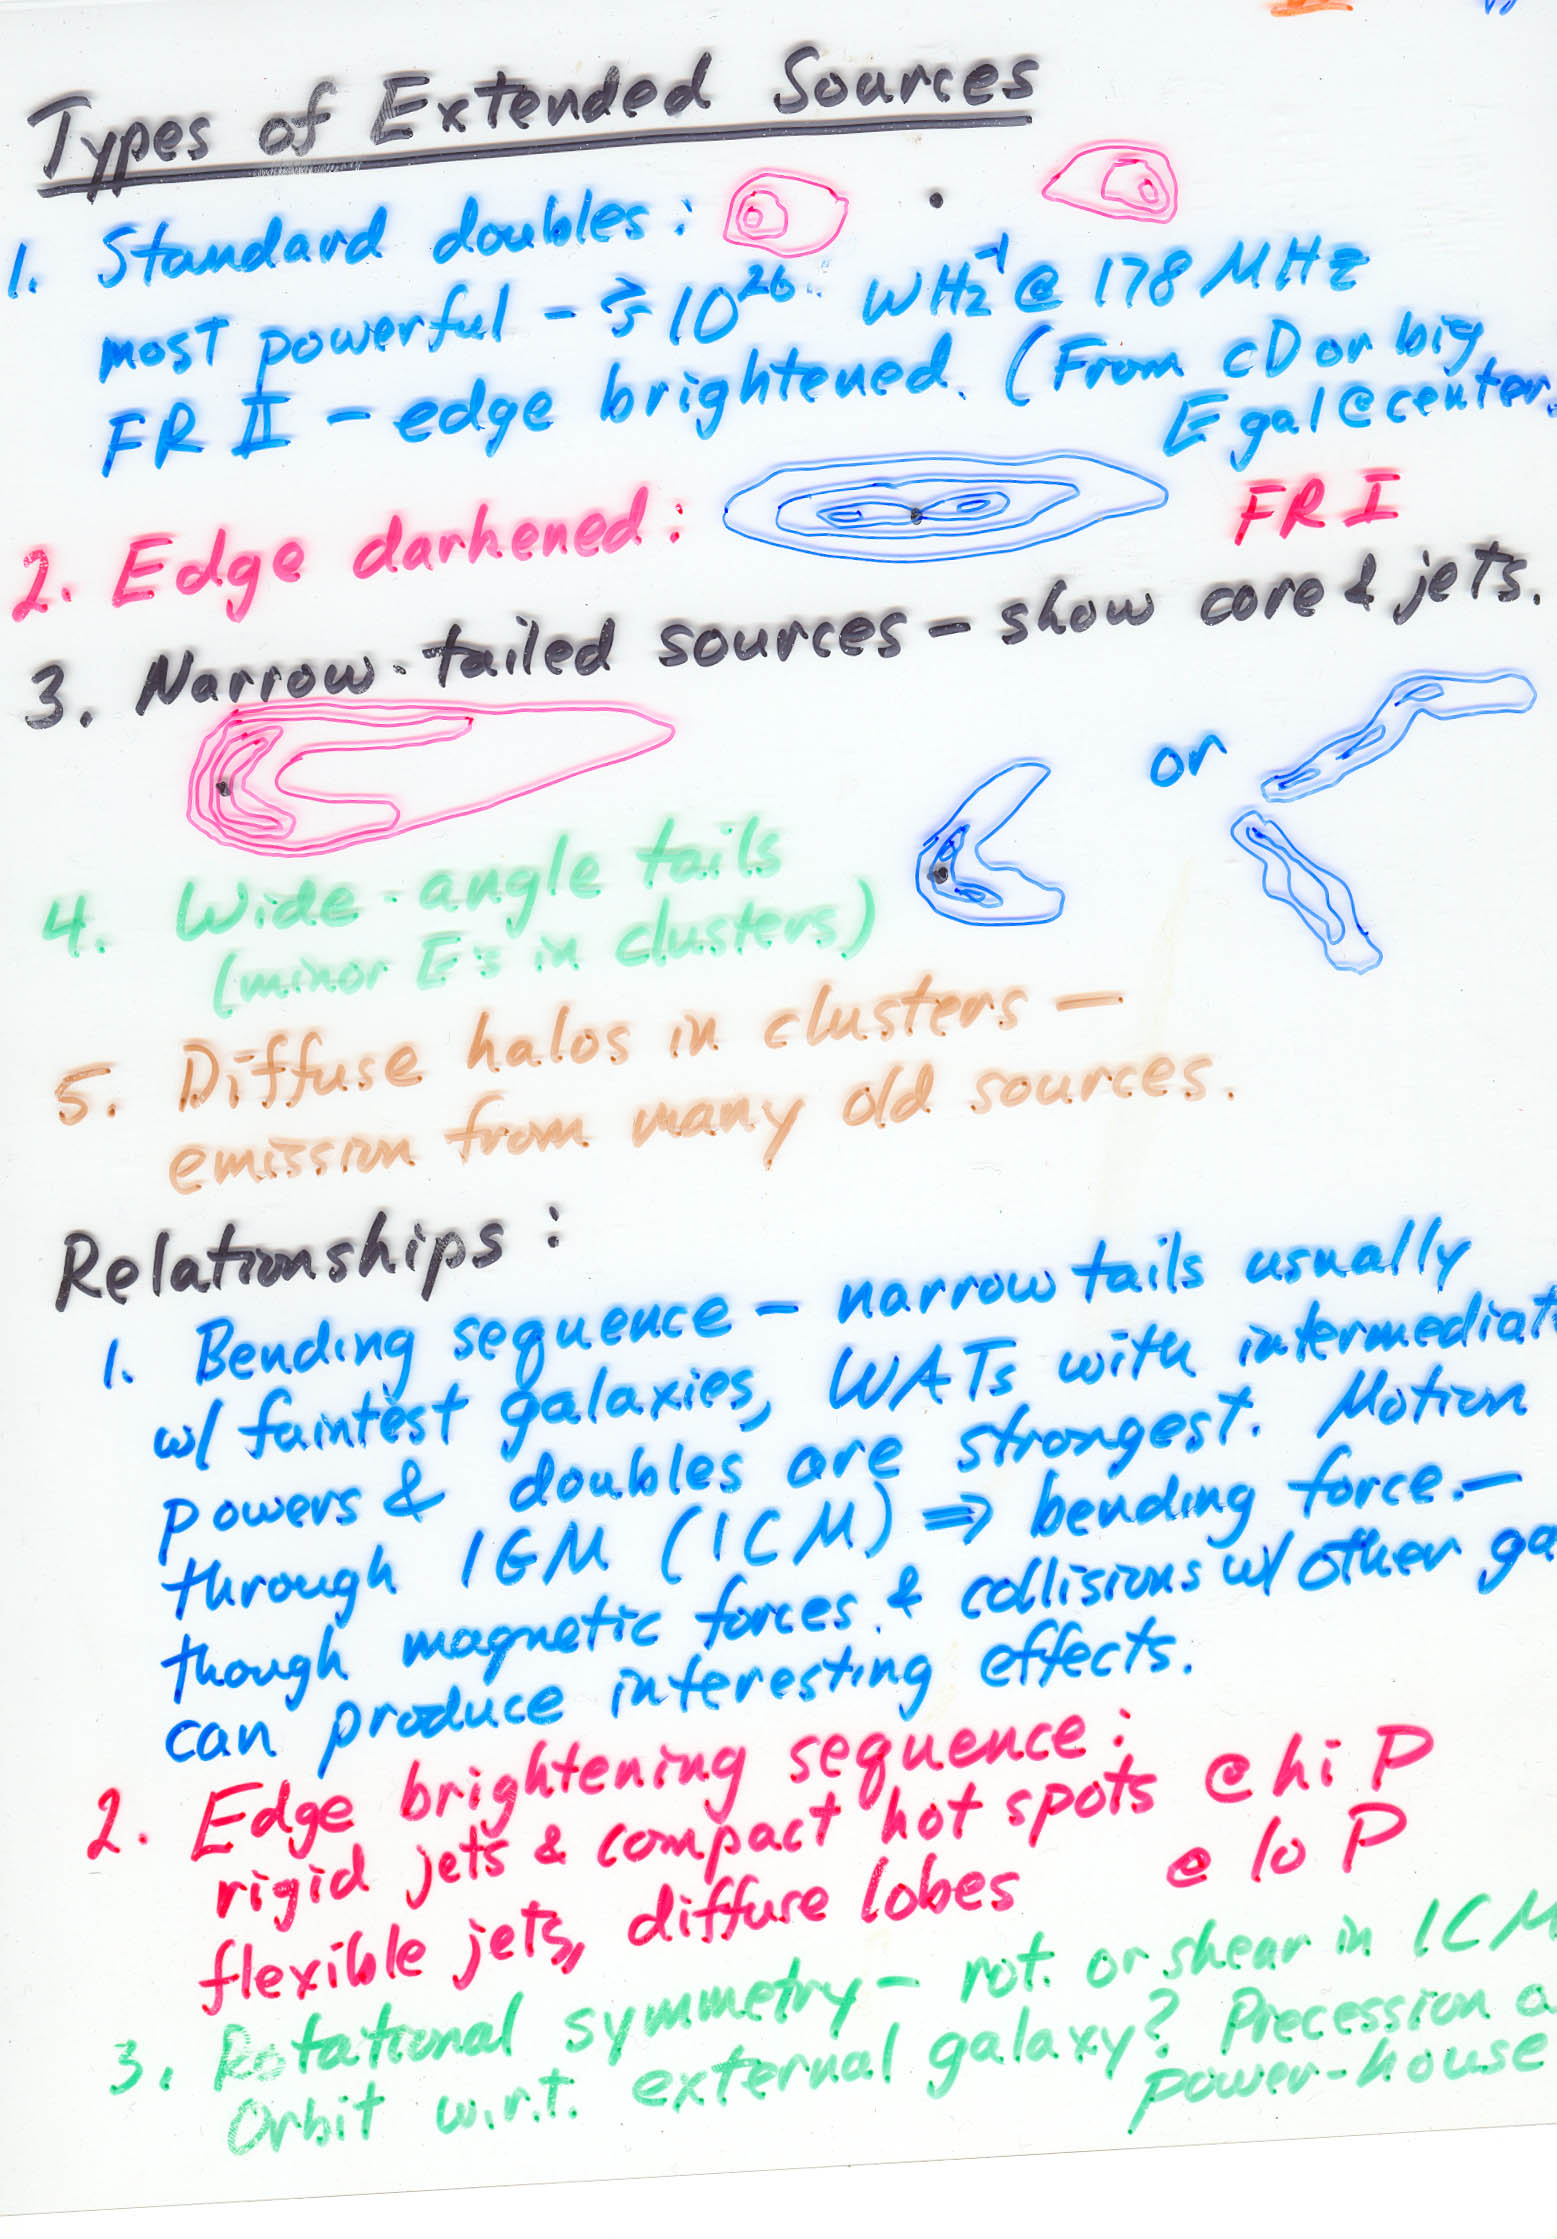 Types of Extended Sources
1. Standard doubles:
most powerful - ≳ 10^26 W Hz^-1 @ 178 MHz
FR II - edge brightened. (From cD or big
E gal @ center.
2. Edge darkened: FR I
3. Narrow-tailed sources - show core & jets.
or
4. Wide-angle tails
(minor E's in clusters)
5. Diffuse halos in clusters —
emission from many old sources.
Relationships:
1. Bending sequence - narrow tails usually
w/ faintest galaxies, WATs with intermediat
powers & doubles are strongest. Motion
through IGM (ICM) ⇒ bending force. —
though magnetic forces & collisions w/ other ga
can produce interesting effects.
2. Edge brightening sequence:
rigid jets & compact hot spots @ hi P
flexible jets, diffuse lobes @ lo P
3. Rotational symmetry - rot. or shear in ICM
Orbit w.r.t. external galaxy? Precession
power-house